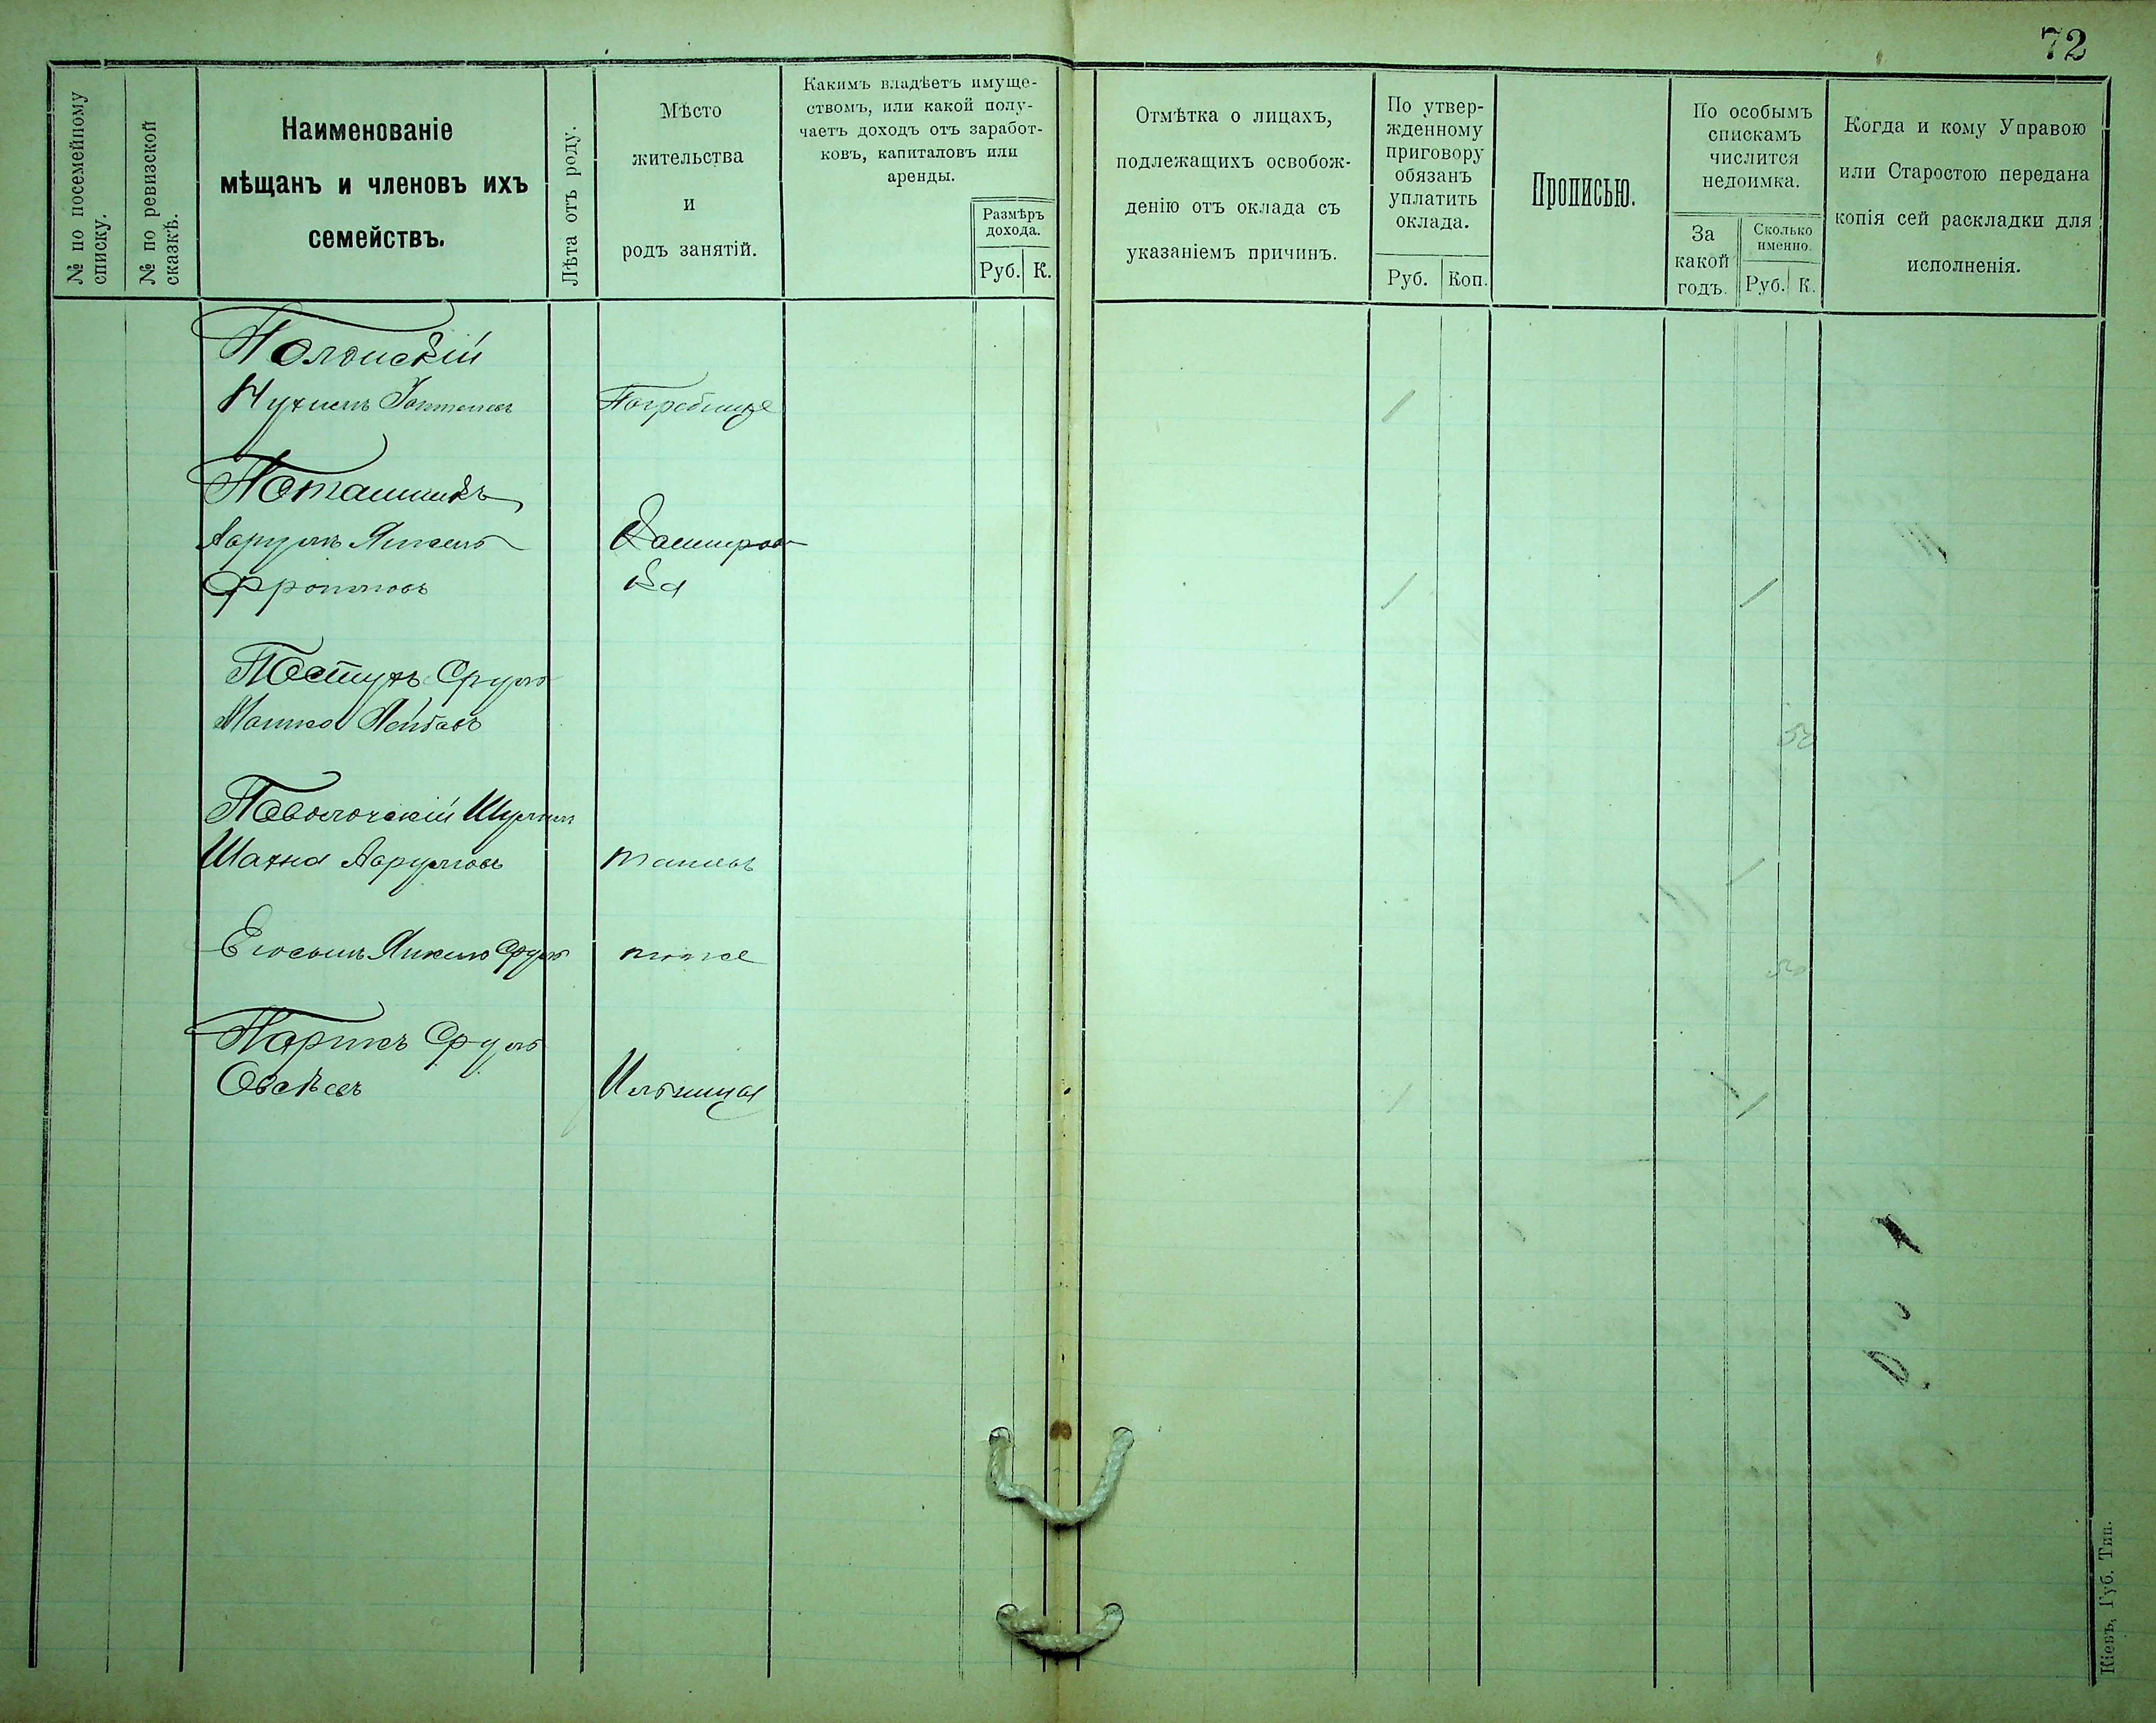 72
№ по посемейному
списку.
№ по ревизской
сказкѣ.
Наименованіе
мѣщанъ и членовъ ихъ
семействъ.
Лѣта отъ роду.
Мѣсто
жительства
и
родъ занятій.
Какимъ владѣетъ имуще-
ствомъ, или какой полу-
чаетъ доходъ отъ заработ-
ковъ, капиталовъ или
аренды.
Размѣръ
дохода.
Руб. К.
Отмѣтка о лицахъ,
подлежащихъ освобож-
денію отъ оклада съ
указаніемъ причинъ.
По утвер-
жденному
приговору
обязанъ
уплатить
оклада.
Руб. Коп.
Прописью.
По особымъ
спискамъ
числится
недоимка.
За
какой
годъ.
Сколько
именно.
Руб. К.
Когда и кому Управою
или Старостою передана
копія сей раскладки для
исполненія.
Полонскій
Нухимъ Погребище 1
Поташникъ
Аврумъ Янкель Кашперов
Фроимовъ ка 1 1
Пастухъ Сруль
Мошко Лейбовъ 50
Паволочскій
Шахна Аврумовъ 1
Янкель Сруль тоже 50
Парикъ Сруль
Овсѣевъ Ильинцы 1 1
Кіевъ, Губ. Тип.